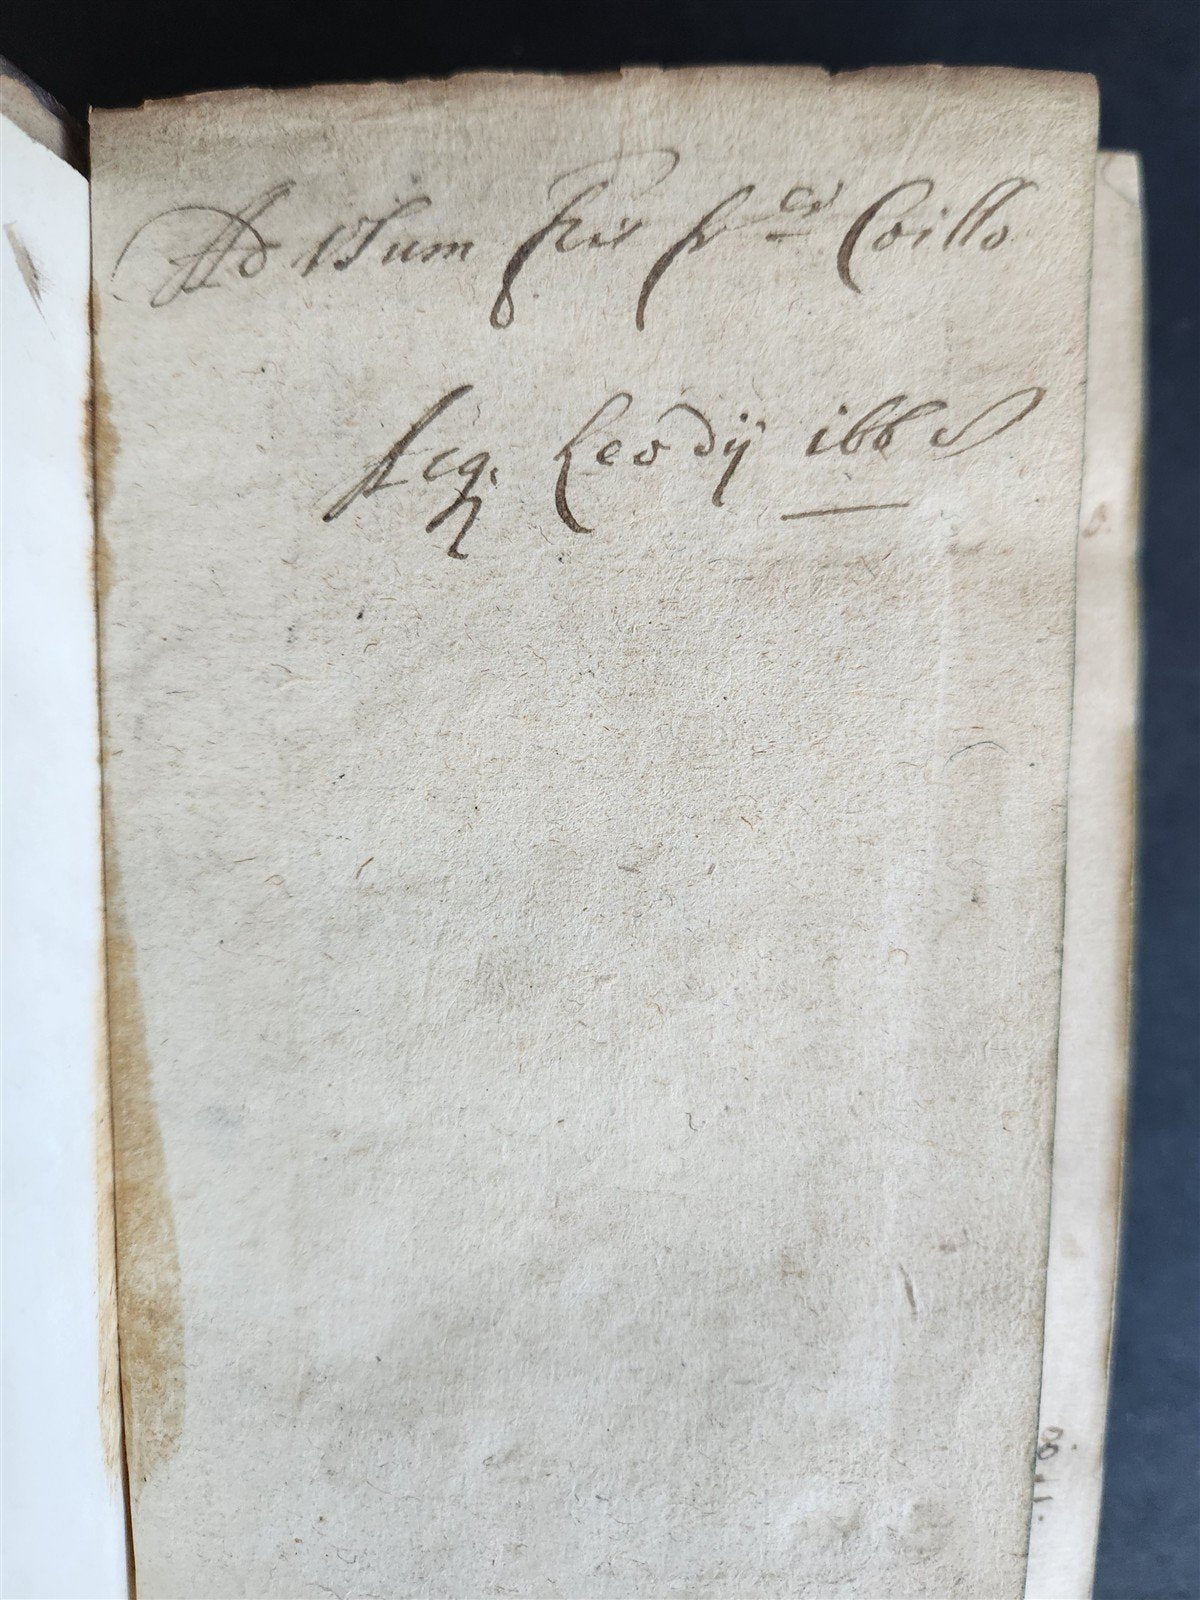 Ad Usum Fris Fr ci Coillo
Acq. Leodij 1668
8.11.